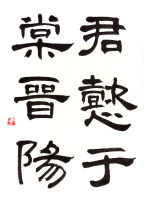 君懿于
棠晉陽